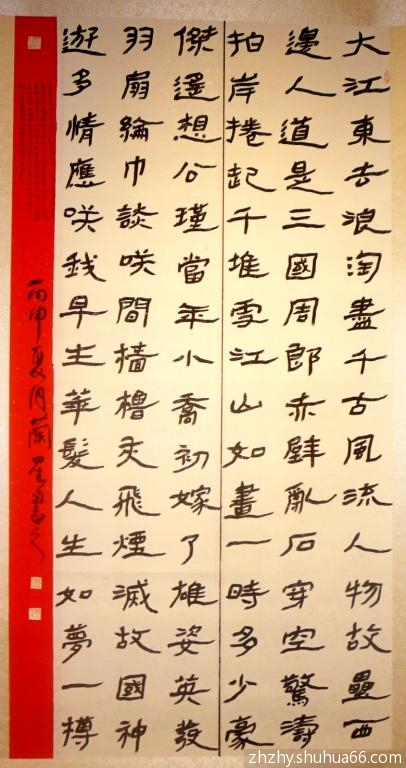 大江東去浪淘盡千古風流人物故壘西
邊人道是三國周郎赤壁亂石穿空驚濤
拍岸捲起千堆雪江山如畫一時多少豪
傑遙想公瑾當年小喬初嫁了雄姿英發
羽扇綸巾談咲間檣櫓灰飛煙滅故國神
遊多情應咲我早生華髮人生如夢一樽
丙申夏月蘭星書之
zhzhy.shuhua66.com